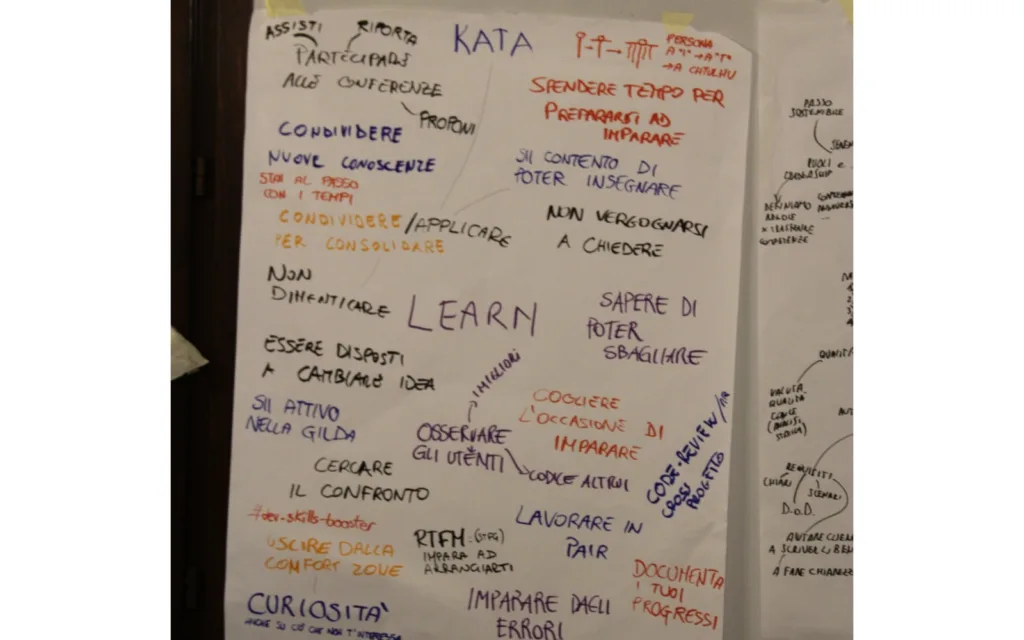 ASSISTI
RIPORTA
PARTECIPARE
ALLE CONFERENZE
PROPONI
KATA
PERSONA
A "T" → A "π"
→ A CHTULHU
SPENDERE TEMPO PER
PREPARARSI AD
IMPARARE
CONDIVIDERE
NUOVE CONOSCENZE
STAI AL PASSO
CON I TEMPI
SII CONTENTO DI
POTER INSEGNARE
CONDIVIDERE/APPLICARE
PER CONSOLIDARE
NON VERGOGNARSI
A CHIEDERE
NON
DIMENTICARE
LEARN
SAPERE DI
POTER
SBAGLIARE
ESSERE DISPOSTI
A CAMBIARE IDEA
I MIGLIORI
SII ATTIVO
NELLA GILDA
OSSERVARE
GLI UTENTI
CODICE ALTRUI
COGLIERE
L'OCCASIONE DI
IMPARARE
CODE-REVIEW/
CROSS
PROGETTO
CERCARE
IL CONFRONTO
#dev-skills-booster
USCIRE DALLA
COMFORT ZONE
RTFM:
IMPARA AD
ARRANGIARTI
LAVORARE IN
PAIR
DOCUMENTA
I TUOI
PROGRESSI
CURIOSITA'
ANCHE SU CIÒ CHE NON T'INTERESSA
IMPARARE DAGLI
ERRORI
PASSO
SOSTENIBILE
RUOLI e
DEFINIAMO
QUALITÀ
VALUTA
QUALITÀ
CODICE
(ANALISI
REQUISITI
CHIARI
SCENARI
D.o.D.
AIUTARE CLIEN
A SCRIVERLI BEN
A FARE CHIAREZZ